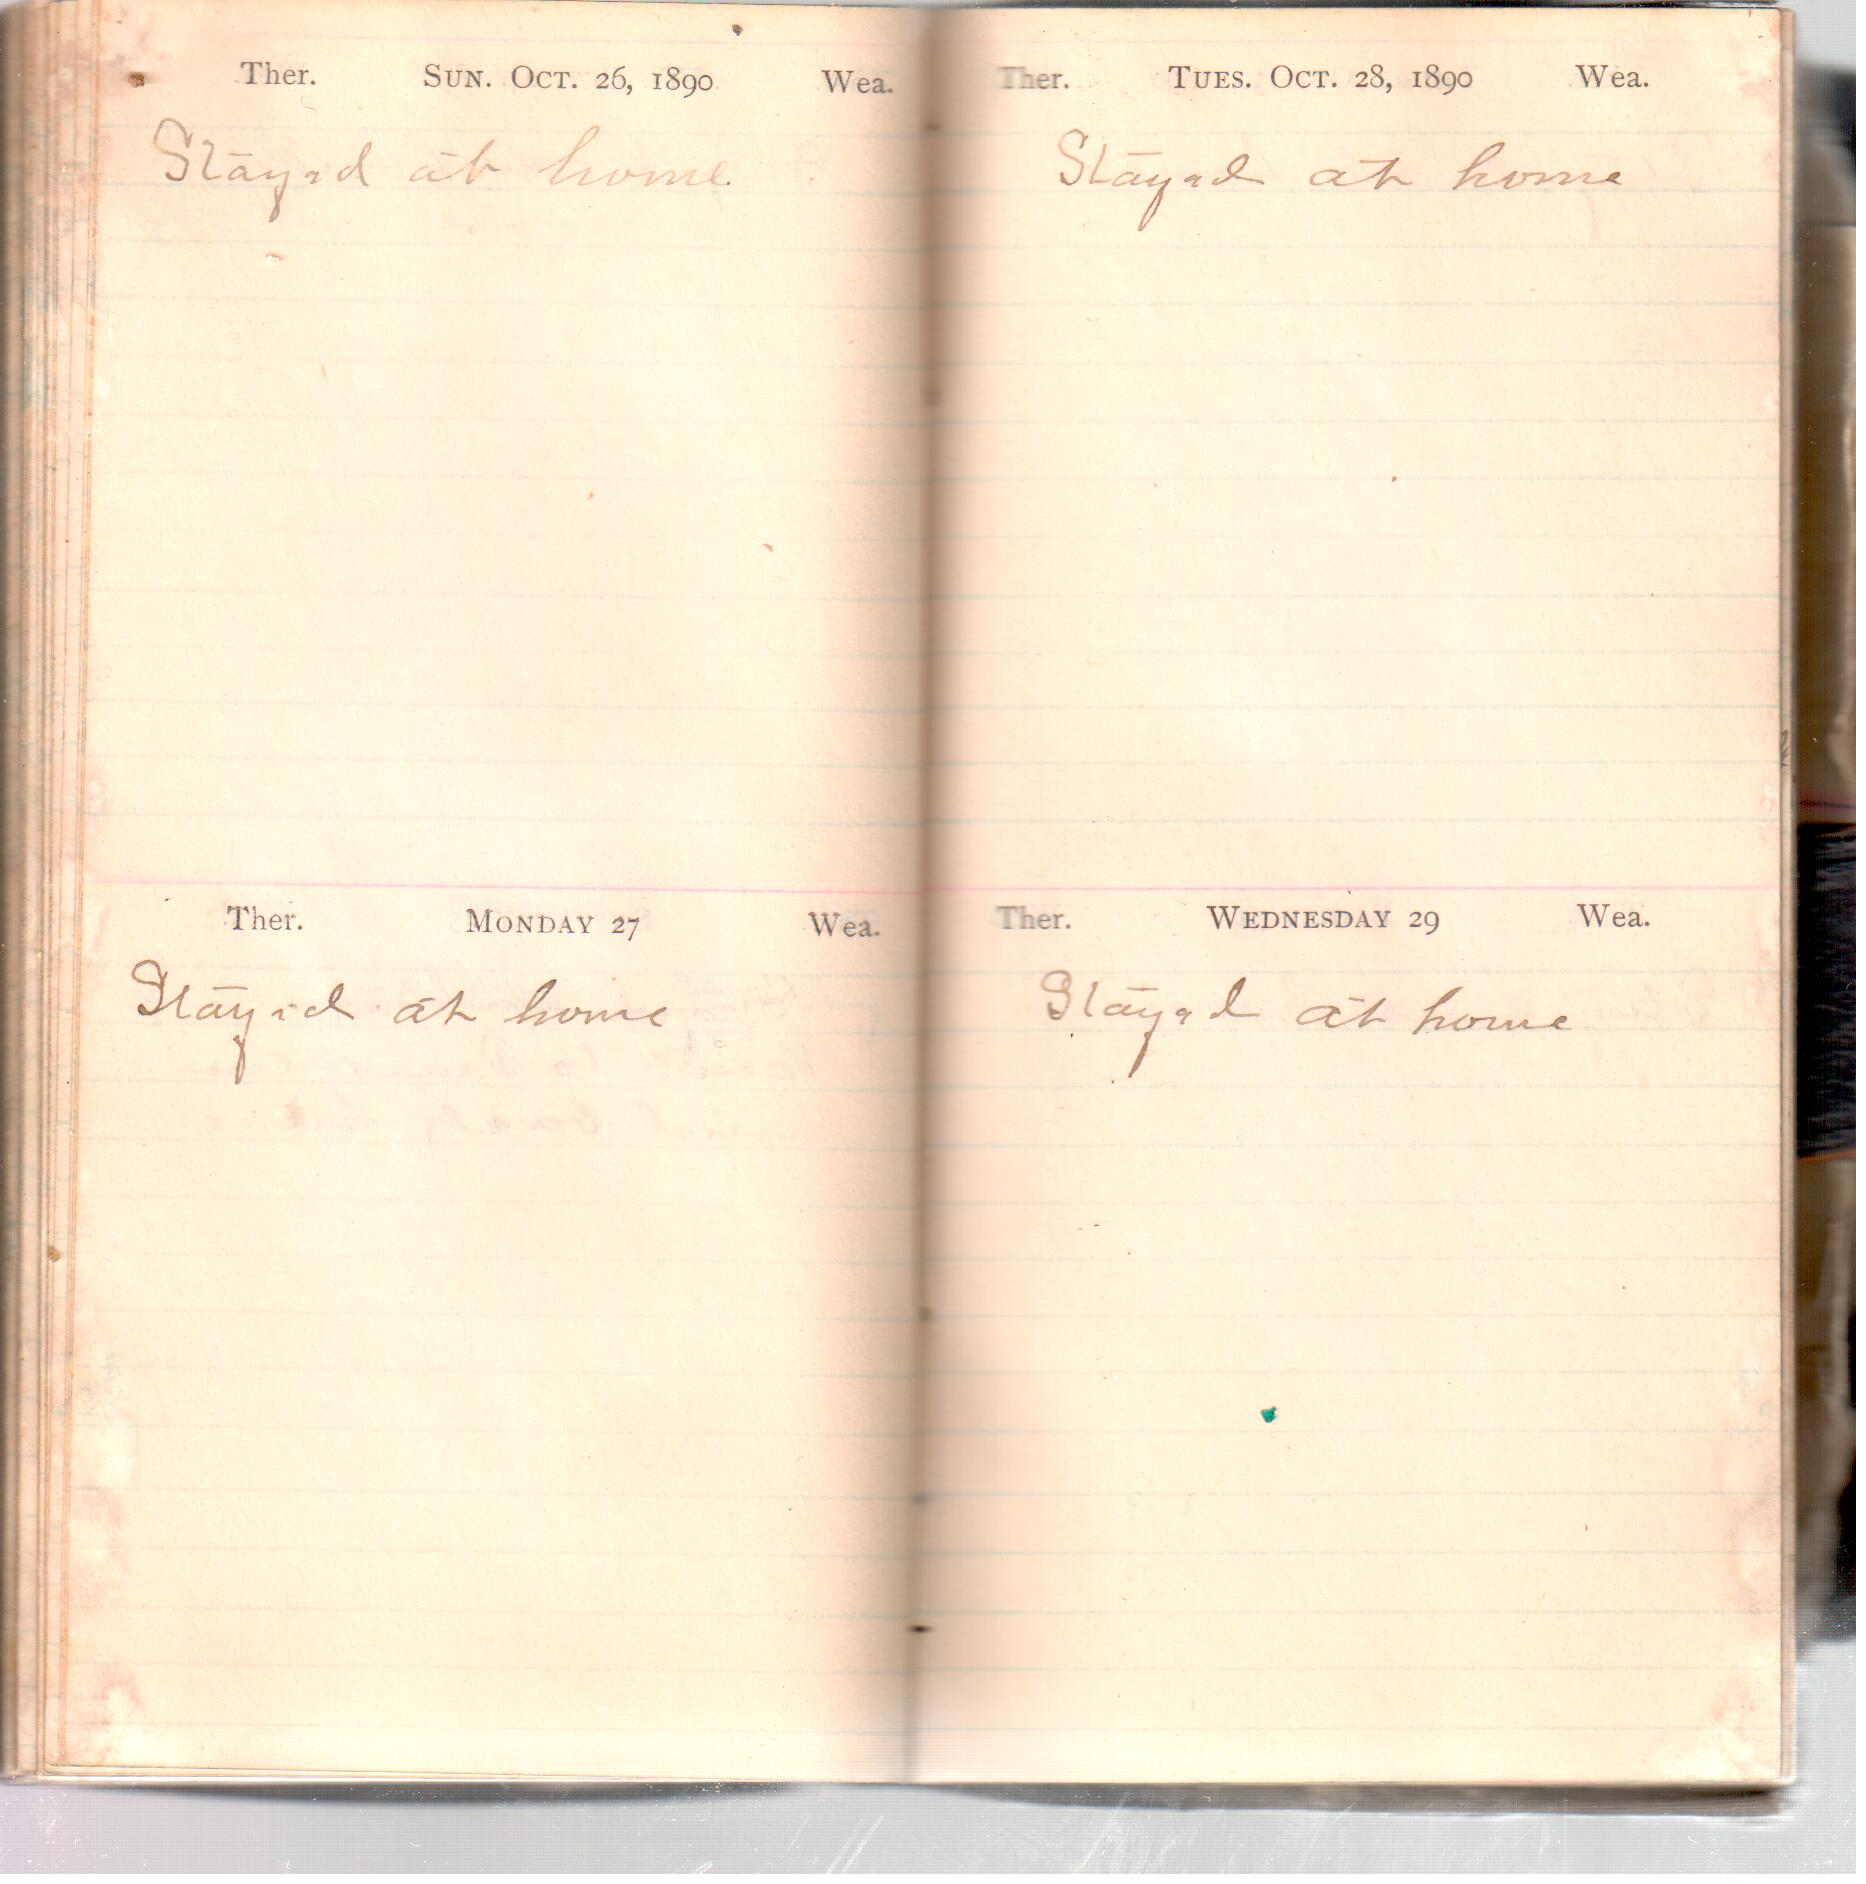 Ther. SUN. OCT. 26, 1890 Wea.
Stayed at home.
Ther. MONDAY 27 Wea.
Stayed at home
Ther. TUES. OCT. 28, 1890 Wea.
Stayed at home
Ther. WEDNESDAY 29 Wea.
Stayed at home